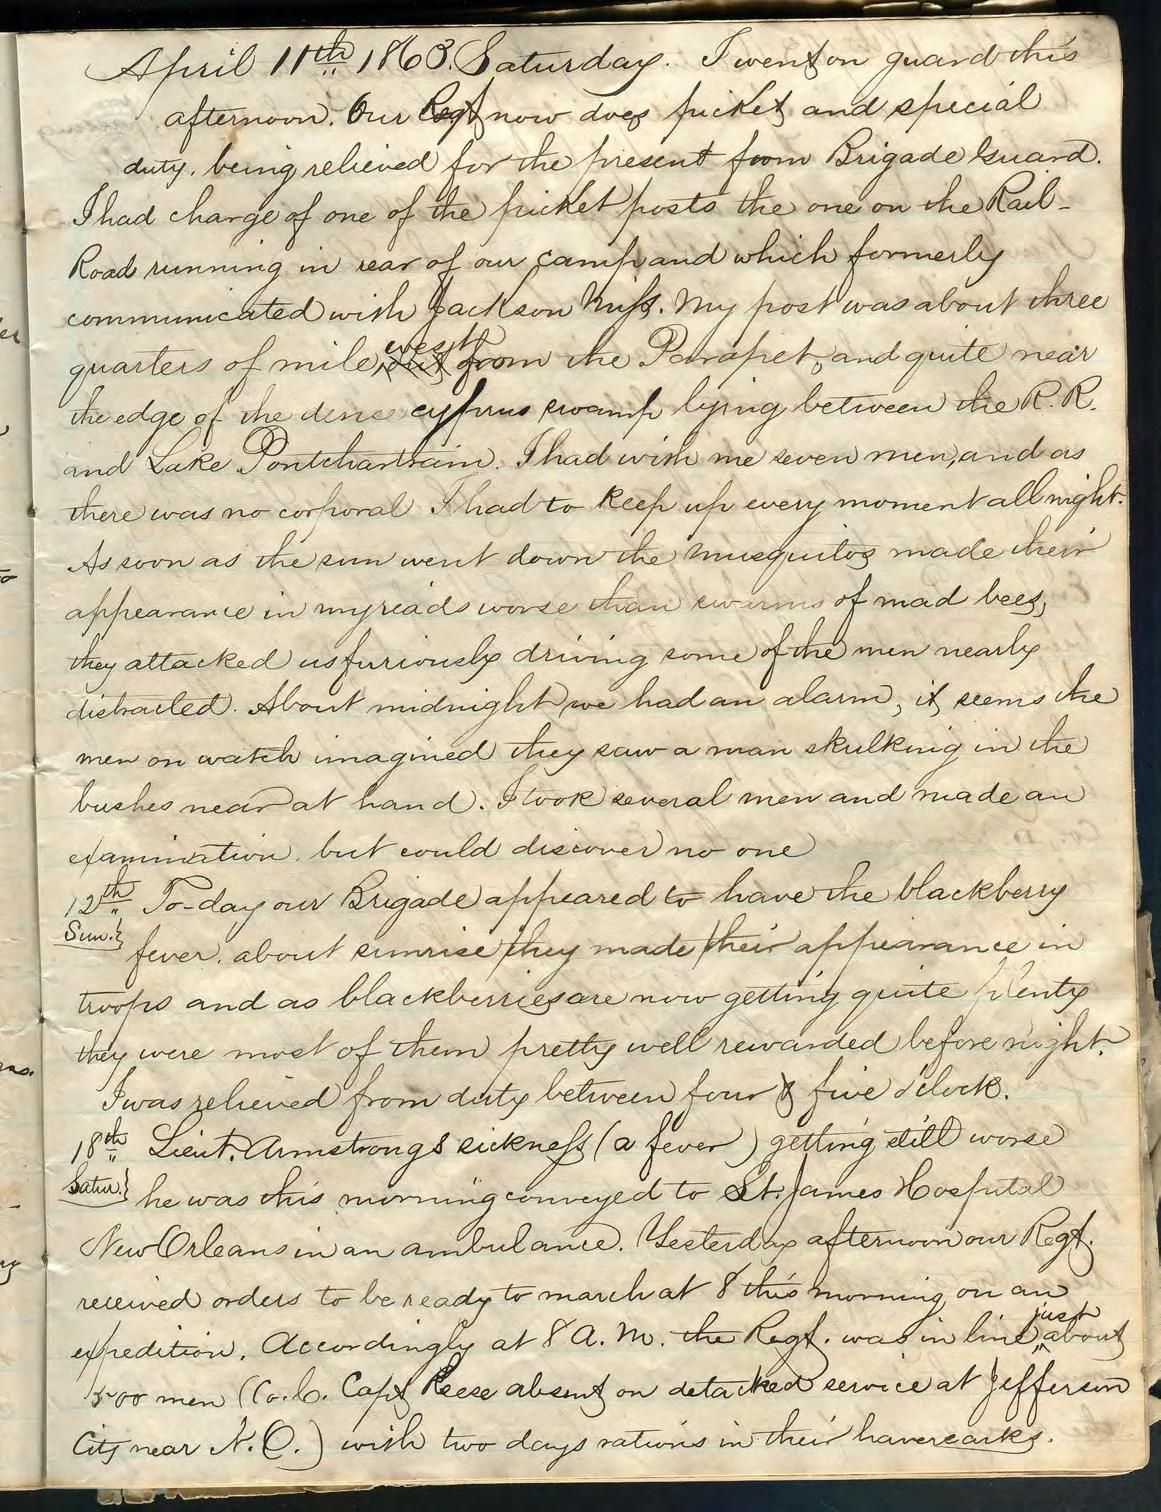 April 11th 1863. Saturday. I went on guard this
afternoon. Our Regt now does picket and special
duty, being relieved for the present from Brigade Guard.
I had charge of one of the picket posts the one on the Rail-
Road running in rear of our camp and which formerly
communicated with Jackson Miss. My post was about three
quarters of mile west from the Parapet, and quite near
the edge of the dence cyprus swamp lying between the R. R.
and Lake Pontchartrain. I had with me seven men, and as
there was no corporal I had to keep up every moment all night.
As soon as the sun went down the musquitos made their
appearance in myreads worse than swarms of mad bees,
they attacked us furiously driving some of the men nearly
distracted. About midnight we had an alarm, it seems the
men on watch imagined they saw a man skulking in the
bushes near at hand. I took several men and made an
examination. but could discover no one
12th To-day our Brigade appeared to have the blackberry
Sun.} fever. about sunrise they made their appearance in
troops and as blackberries are now getting quite plenty
they were most of them pretty well rewarded before night.
I was relieved from duty between four & five o'clock.
18th Lieut. Armstrongs sickness (a fever) getting still worse
Satur.} he was this morning conveyed to St. James Hospital
New Orleans in an ambulance. Yesterday afternoon our Regt.
received orders to be ready to march at 8 this morning on an
expedition. Accordingly at 8 A. M. the Regt. was in line just about
500 men (Co. C. Capt Reese absent on detatched service at Jefferson
City near N. O.) with two days rations in their haversacks.